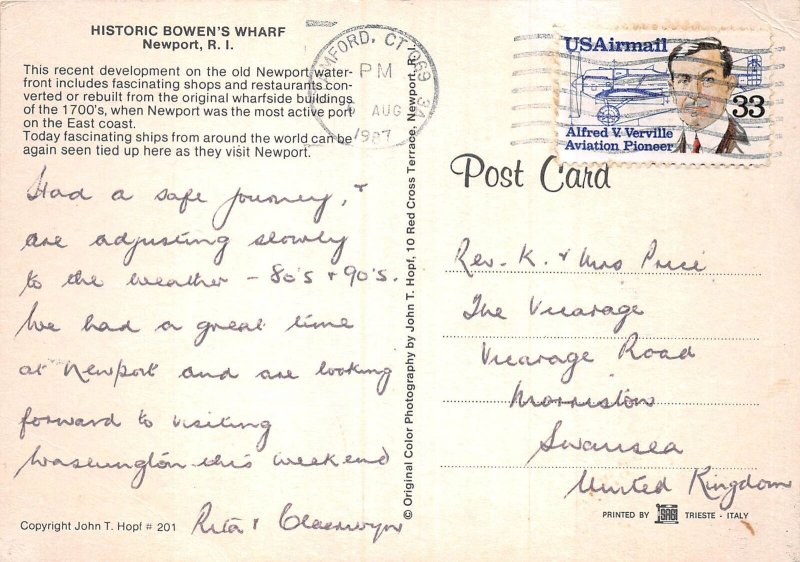 HISTORIC BOWEN'S WHARF
Newport, R. I.
This recent development on the old Newport water-
front includes fascinating shops and restaurants con-
verted or rebuilt from the original wharfside buildings
of the 1700's, when Newport was the most active port
on the East coast.
Today fascinating ships from around the world can be
again seen tied up here as they visit Newport.
Had a safe journey, &
are adjusting slowly
to the weather – 80's & 90's.
We had a great time
at Newport and are looking
forward to visiting
Washington this weekend
Rita &
Copyright John T. Hopf # 201
© Original Color Photography by John T. Hopf, 10 Red Cross Terrace, Newport, R.I.
CT 069
PM
AUG
1987
USAirmail
33
Alfred V. Verville
Aviation Pioneer
Post Card
Rev. K. & Mrs Price
The Vicarage
Vicarage Road
Morriston
Swansea
United Kingdom
PRINTED BY TRIESTE - ITALY